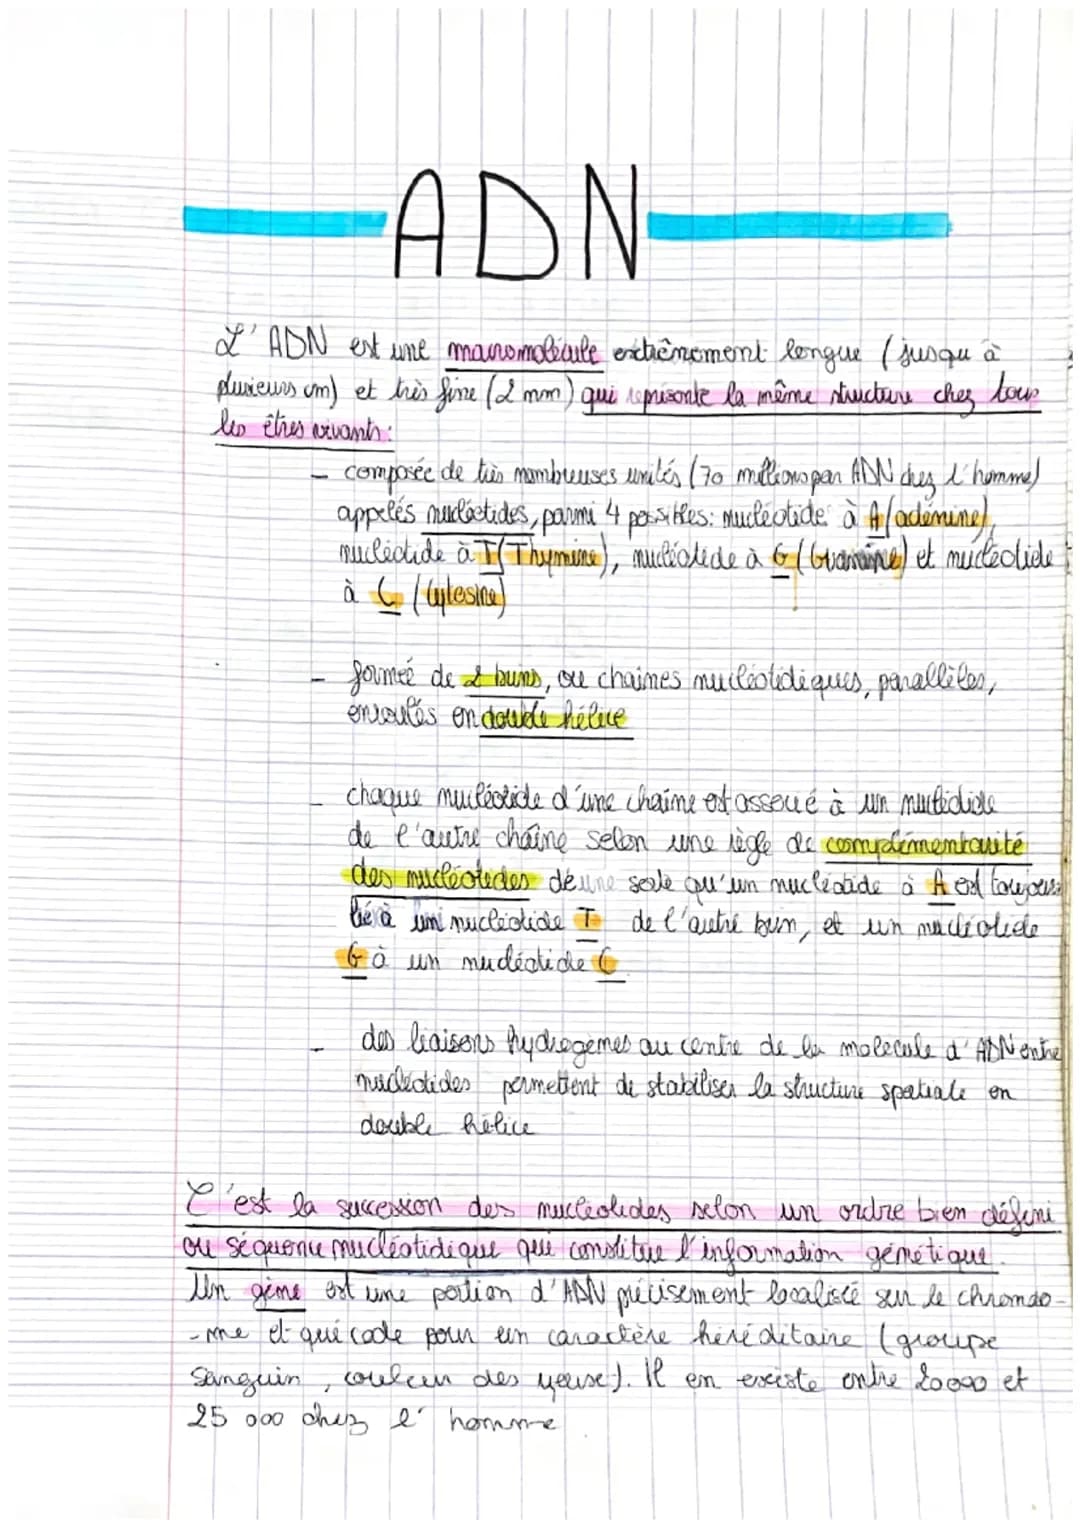 ADN
L'ADN est une macromolécule extrêmement longue (jusqu'à
plusieurs cm) et très fine (2 mm) qui représente la même structure chez tous
les êtres vivants:
- composée de très nombreuses unités (70 millions par ADN chez l'homme)
appelés nucléotides, parmi 4 possibles: nucléotide à A (adénine),
nucléotide à T (Thymine), nucléotide à G (Guanine) et nucléotide
à C (Cytosine)
- formée de 2 brins, ou chaînes nucléotidiques, parallèles,
enroulés en double hélice
- chaque nucléotide d'une chaîne est associé à un nucléotide
de l'autre chaîne selon une règle de complémentarité
des nucléotides de une sorte qu'un nucléotide à A est toujours
lié à un nucléotide T de l'autre brin, et un nucléotide
G à un nucléotide C
- des liaisons hydrogènes au centre de la molécule d'ADN entre
nucléotides permettent de stabiliser la structure spatiale en
double hélice
C'est la succession des nucléotides selon un ordre bien défini
ou séquence nucléotidique qui constitue l'information génétique.
Un gène est une portion d'ADN précisement localisé sur le chromoso-
-me et qui code pour un caractère héréditaire (groupe
sanguin, couleur des yeux). Il en existe entre 20000 et
25 000 chez l'homme